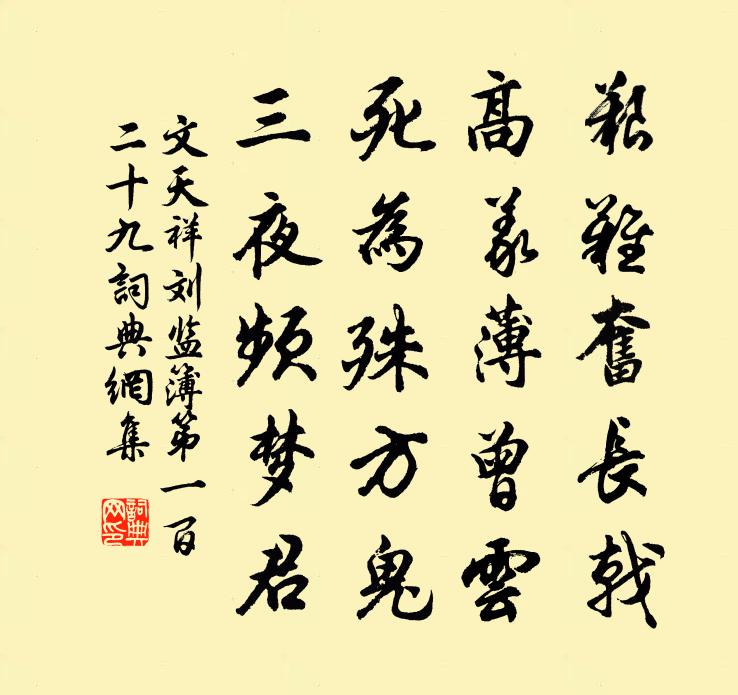 艱難奮長戟
高義薄曾雲
死為殊方鬼
三夜頻梦君
文天祥刘监簿第一百
二十九詞典網集
詞典
网印